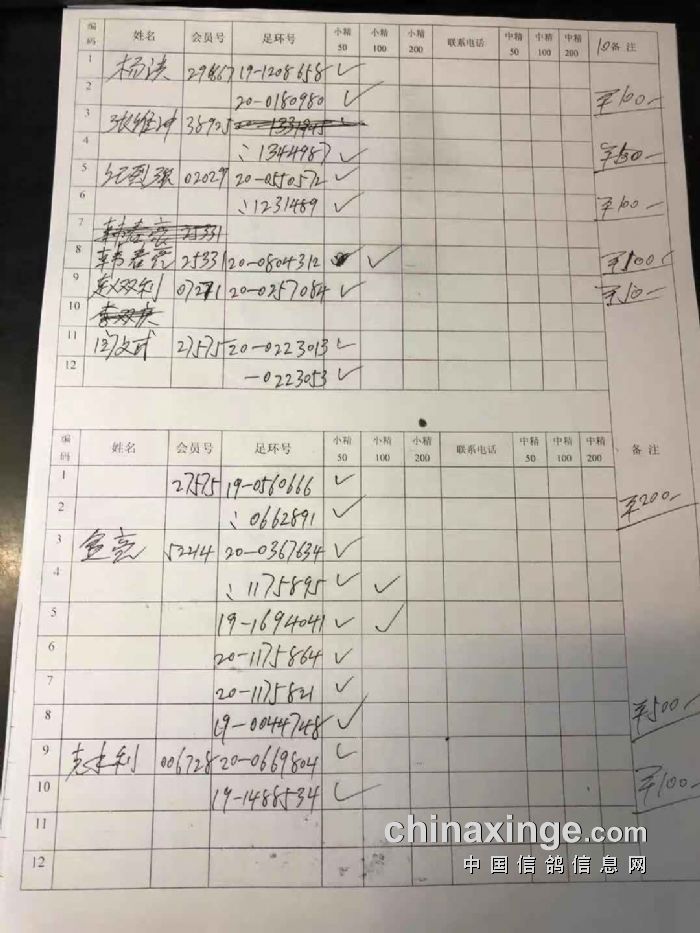 编码 姓名 会员号 足环号 小精50 小精100 小精200 联系电话 中精50 中精100 中精200 备注
1 杨洪 29867 19-1208658 ✓
2 20-0180980 ✓ ¥100-
3 张维冲 38925
4 1344987 ✓
5 02029 20-0550572 ✓
6 1231489 ✓ ¥100-
7 韩春亮 25331
8 韩春亮 25331 20-0804312 ✓
9 赵双利 20-0257084 ✓
10
11 闫文武 27575 20-0223013 ✓
12 -0223053 ✓
编码 姓名 会员号 足环号 小精50 小精100 小精200 联系电话 中精50 中精100 中精200 备注
1 27575 19-0560666 ✓
2 0662891 ✓ ¥200-
3 52214 20-0367634 ✓
4 1175895 ✓ ✓
5 19-1694041 ✓ ✓
6 20-1175864 ✓
7 20-1175821 ✓
8 19-0044748 ✓ ¥500-
9 006728 20-0669804 ✓
10 19-1488534 ✓ ¥100-
11
12
chinaxinge.com
中国信鸽信息网